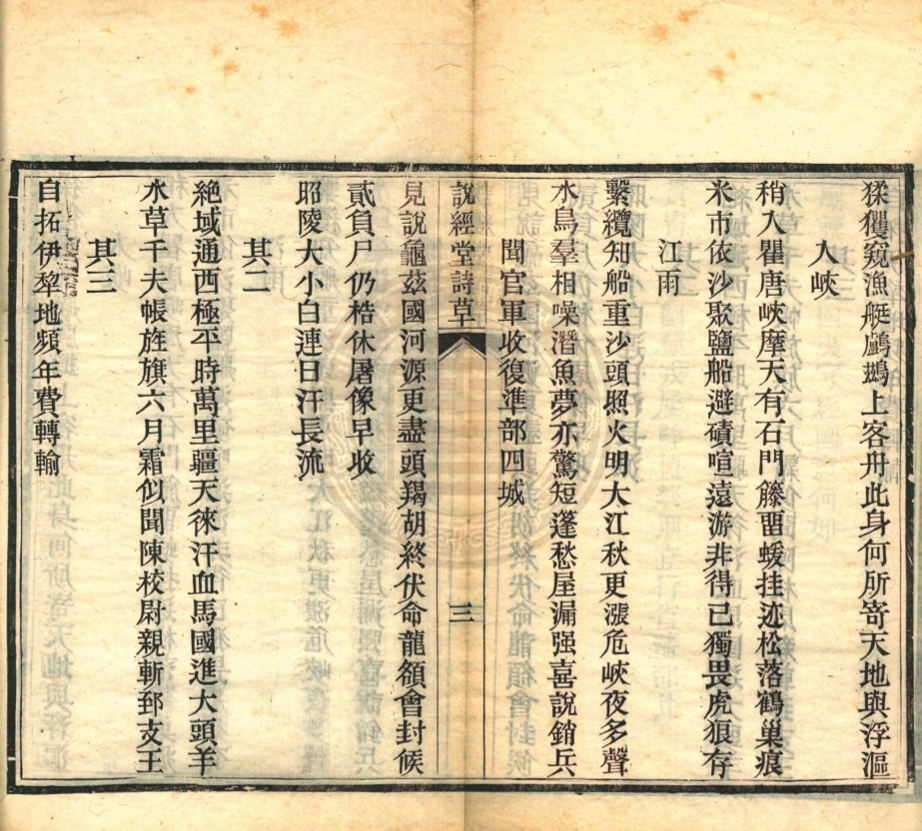 猱玃窺漁艇鸕鷀上客舟此身何所寄天地與浮漚
入峽
稍入瞿唐峽摩天有石門籐畱蝯挂迹松落鶴巢痕
米市依沙聚鹽船避磧喧遠游非得已獨畏虎狼存
江雨
繫纜知船重沙頭照火明大江秋更漲危峽夜多聲
水鳥羣相噪潛魚夢亦驚短篷愁屋漏强喜說銷兵
聞官軍收復準部四城
說經堂詩草
三
見說龜茲國河源更盡頭羯胡終伏命龍額會封候
貳負尸仍梏休屠像早收
昭陵大小白連日汗長流
其二
絶域通西極平時萬里疆天徠汗血馬國進大頭羊
水草千夫帳旌旗六月霜似聞陳校尉親斬郅支王
其三
自拓伊犂地頻年費轉輸